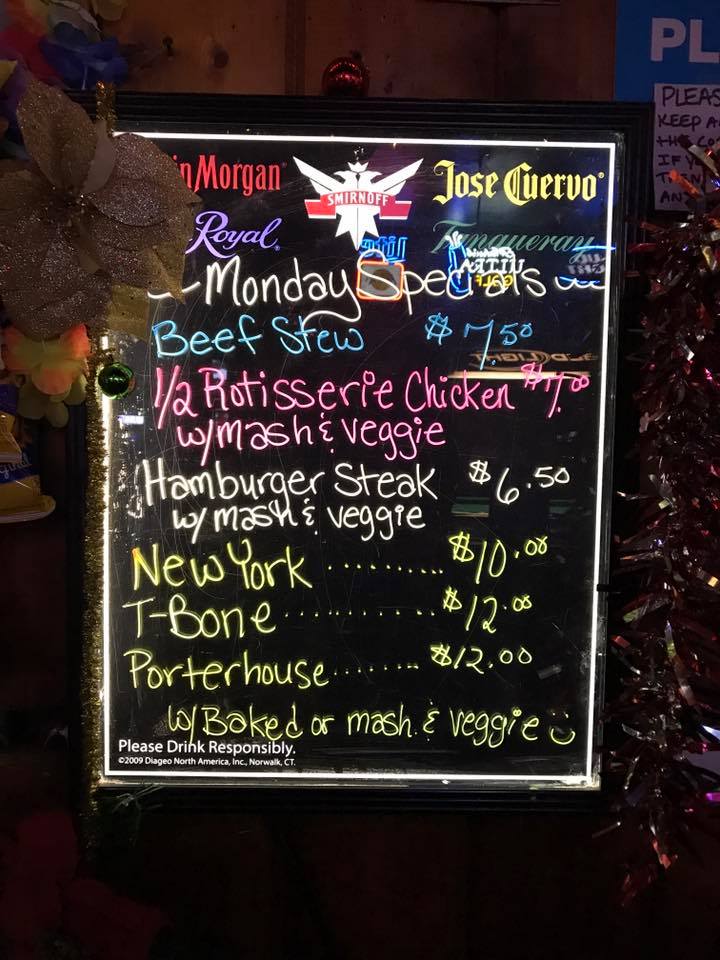 in Morgan
SMIRNOFF
Jose Cuervo
Royal
Tanqueray
Monday Specials
Beef Stew $7.50
1/2 Rotisserie Chicken $7.00
w/mash & veggie
Hamburger Steak $6.50
w/ mash & veggie
New York .......... $10.00
T-Bone ............ $12.00
Porterhouse ....... $12.00
w/ Baked or mash. & veggie
Please Drink Responsibly.
©2009 Diageo North America, Inc., Norwalk, CT.
PL
PLEAS
KEEP A
THE CO
IF Y